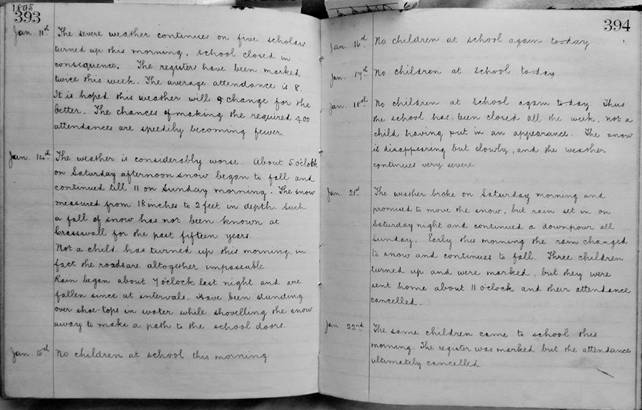 1895
393
Jan. 11th The severe weather continues on five scholars
turned up this morning, school closed in
consequence. The registers have been marked
twice this week. The average attendance is 8.
It is hoped this weather will change for the
better. The chances of making the required 400
attendances are speedily becoming fewer.
Jan. 14th The weather is considerably worse. About 5 o'clock
on Saturday afternoon snow began to fall and
continued till 11 on Sunday morning. The snow
measured from 18 inches to 2 feet in depth. Such
a fall of snow has not been known at
Cresswall for the past fifteen years.
Not a child has turned up this morning in
fact the roads are altogether impassable
Rain began about 7 o'clock last night and
fallen since at intervals. Have been standing
over shoe tops in water while shovelling the snow
away to make a path to the school doors.
Jan. 15th No children at school this morning
394
Jan. 16th No children at school again to-day
Jan. 17th No children at school to-day
Jan. 18th No children at school again to-day. Thus
the school has been closed all the week, not a
child having put in an appearance. The snow
is disappearing but slowly, and the weather
continues very severe
Jan. 21st The weather broke on Saturday morning and
promised to move the snow, but rain set in on
Saturday night and continued a downpour all
Sunday. Early this morning the rain changed
to snow and continues to fall. Three children
turned up and were marked, but they were
sent home about 11 o'clock and their attendance
cancelled.
Jan. 22nd The same children came to school this
morning. The register was marked but the attendance
ultimately cancelled